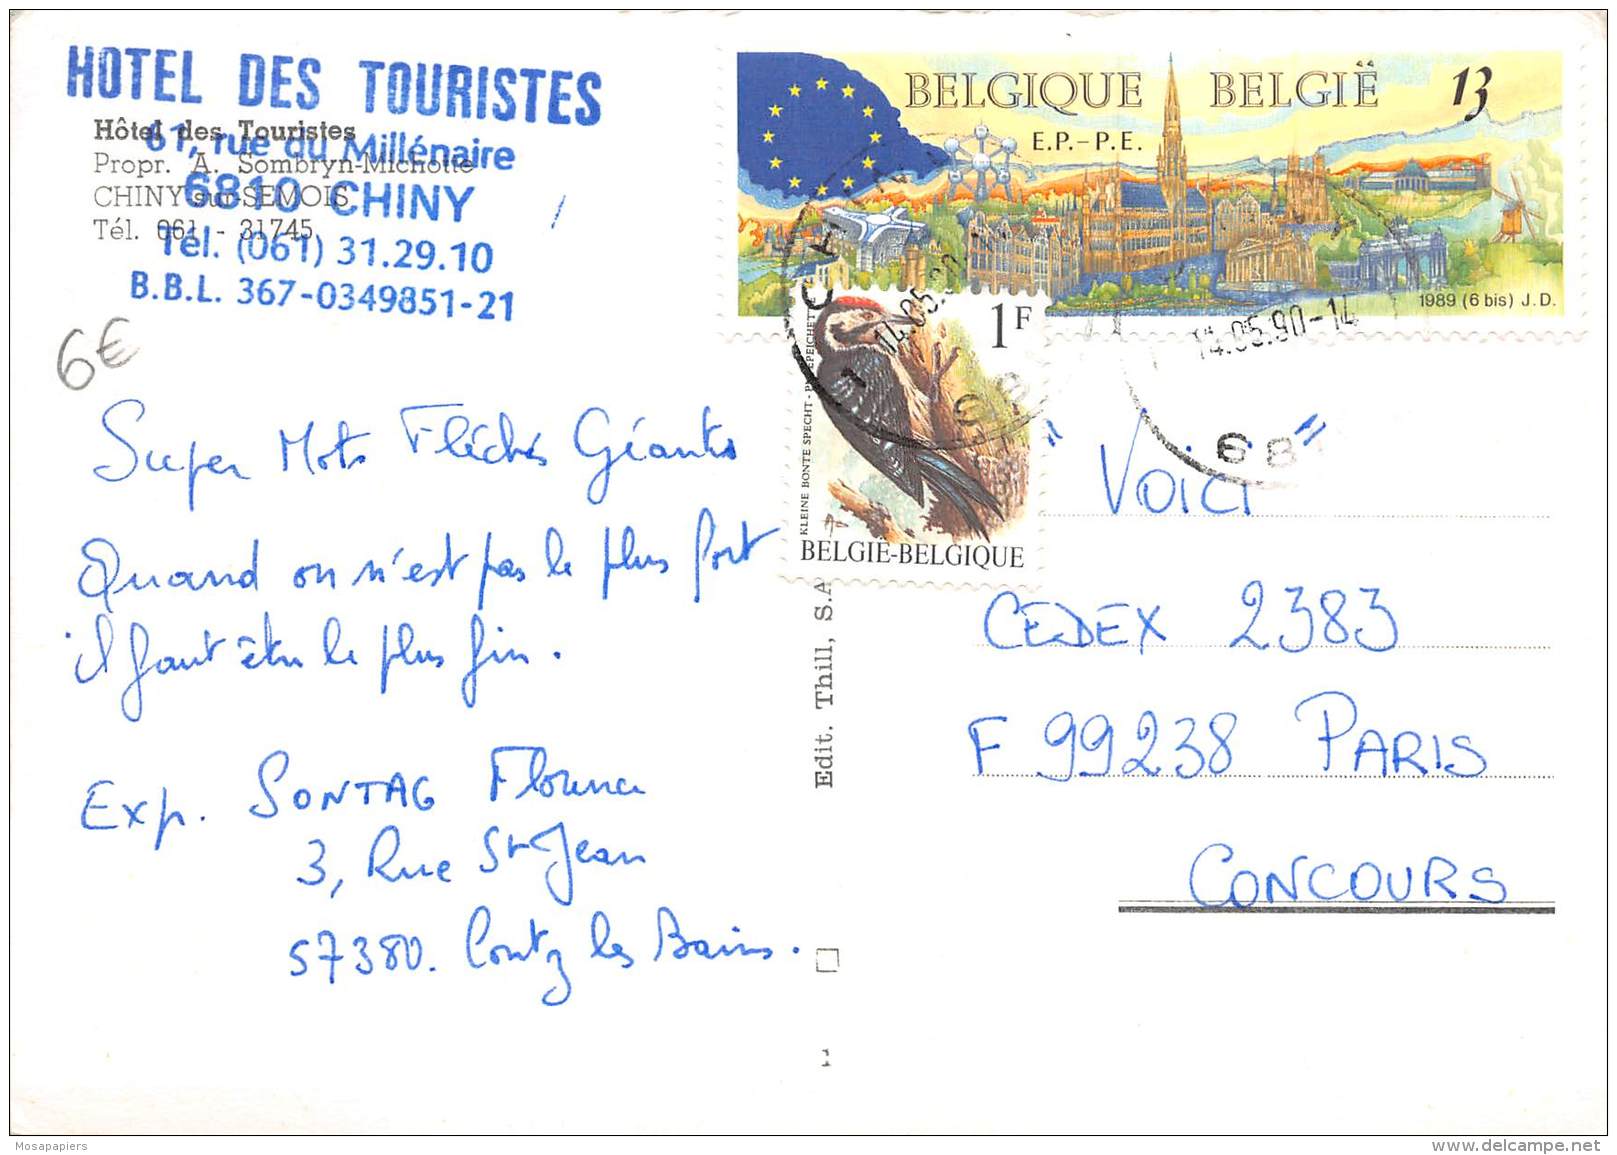 HOTEL DES TOURISTES
61, rue du Millénaire
6810 CHINY
Tél. (061) 31.29.10
B.B.L. 367-0349851-21
Hôtel des Touristes
Propr. A. Sombryn-Michotte
CHINY-sur-SEMOIS
Tél. 061 - 31745
6€
BELGIQUE BELGIË 13
E.P.-P.E.
1989 (6 bis) J.D.
14.05.90-14
1F
KLEINE BONTE SPECHT - PIC EPEICHETTE
BELGIË-BELGIQUE
Super Mots Fléchés Géants
Quand on n'est pas le plus fort
il faut être le plus fin.
Exp. SONTAG Florence
3, Rue St Jean
57380. Contz les Bains.
Edit. Thill, S.A
" VOICI "
CEDEX 2383
F 99238 PARIS
CONCOURS
Mosapapiers
delcampe.net